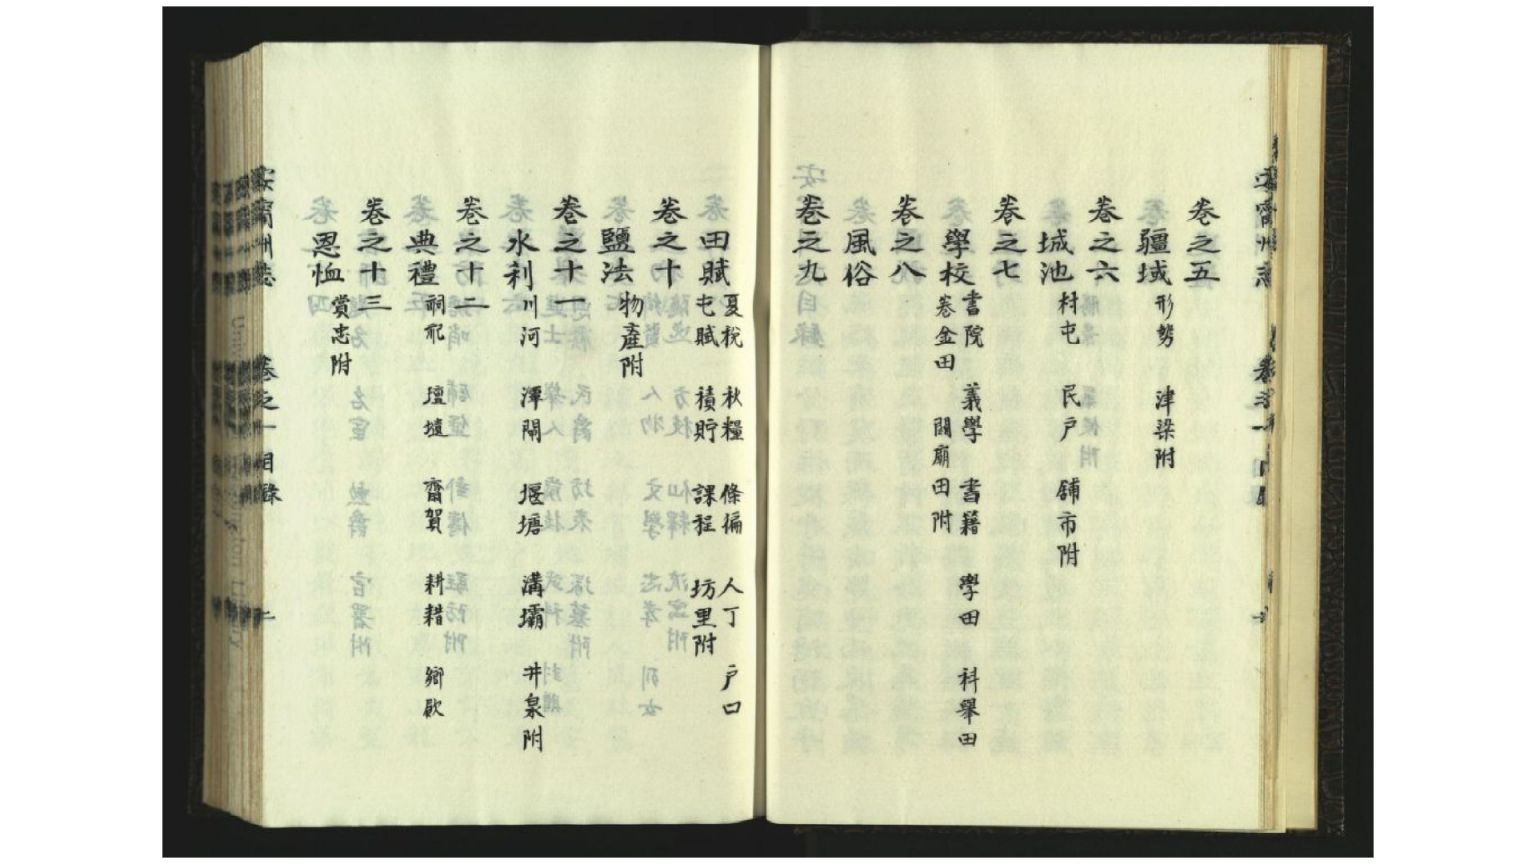 卷之五
疆域 形勢 津梁附
卷之六
城池 村屯 民戶 舖市附
卷之七
學校 書院 義學 書籍 學田 科舉田
卷金田 關廟田附
卷之八
風俗
卷之九
田賦 夏稅 秋糧 條編 人丁 戶口
屯賦 積貯 課程 坊里附
卷之十
鹽法 物產附
卷之十一
水利 川河 潭閘 堰塘 溝壩 井泉附
卷之十二
典禮 祠祀 壇壝 齋賀 耕耤 鄉飲
卷之十三
恩恤 賞忠附
安甯州志 卷之一 目錄 二